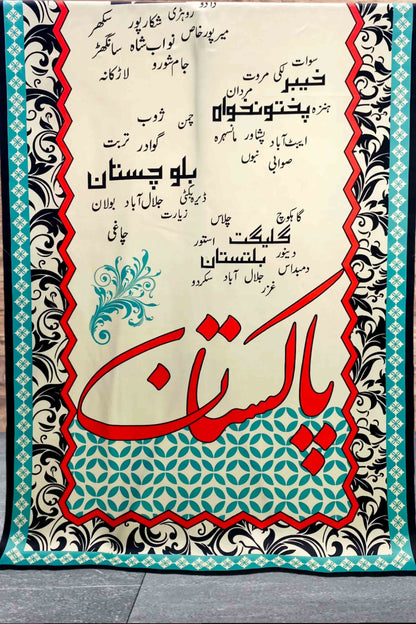 دادو
روہڑی
شکارپور
سکھر
میرپورخاص
نواب شاہ
سانگھڑ
جام شورو
لاڑکانہ
سوات
لکی مروت
خیبر
پختونخواہ
مردان
ہنزہ
ایبٹ آباد
پشاور
مانسہرہ
صوابی
بنوں
چمن
ژوب
گوادر
تربت
بلوچستان
ڈیرہ بگٹی
جلال آباد
بولان
زیارت
چاغی
گاہکوچ
چلاس
گلگت
بلتستان
استور
دنیور
دمبداس
جلال آباد
سکردو
غزر
پاکستان